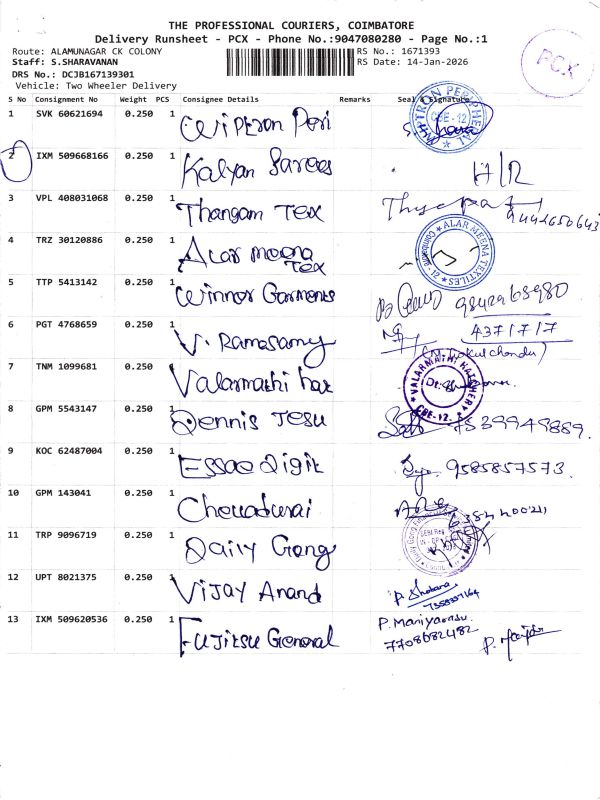 THE PROFESSIONAL COURIERS, COIMBATORE
Delivery Runsheet - PCX - Phone No.:9047080280 - Page No.:1
Route: ALAMUNAGAR CK COLONY
RS No.: 1671393
Staff: S.SHARAVANAN
RS Date: 14-Jan-2026
DRS No.: DCJB167139301
Vehicle: Two Wheeler Delivery
PCX
S No Consignment No Weight PCS Consignee Details Remarks Seal & Signature
1 SVK 60621694 0.250 1
CBE - 12
2 IXM 509668166 0.250 1 Kalyan Sarees
3 VPL 408031068 0.250 1 Thangam Tex
4 TRZ 30120886 0.250 1 Alar meena
Tex
ALAR MEENA TEXTILES
5 TTP 5413142 0.250 1 Winner Garments 9842968980
6 PGT 4768659 0.250 1 V. Ramasamy 437/7/7
7 TNM 1099681 0.250 1 Valarmathi hat
VALARMATHI HATCHERY
CBE-12.
8 GPM 5543147 0.250 1 Dennis Jesu 7539949889.
9 KOC 62487004 0.250 1 Essae Digit 9585857573.
10 GPM 143041 0.250 1
11 TRP 9096719 0.250 1 Daily Gong
12 UPT 8021375 0.250 1 Vijay Anand
13 IXM 509620536 0.250 1 Fujitsu General
7708682482